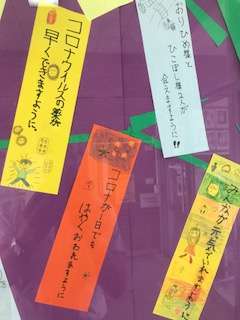 おりひめ星と
ひこぼし星さんが
会えますように!!
コロナウイルスの薬が
早くできますように。
みんなが元気でいれますように
コロナが一日でも
はやくおわれますように